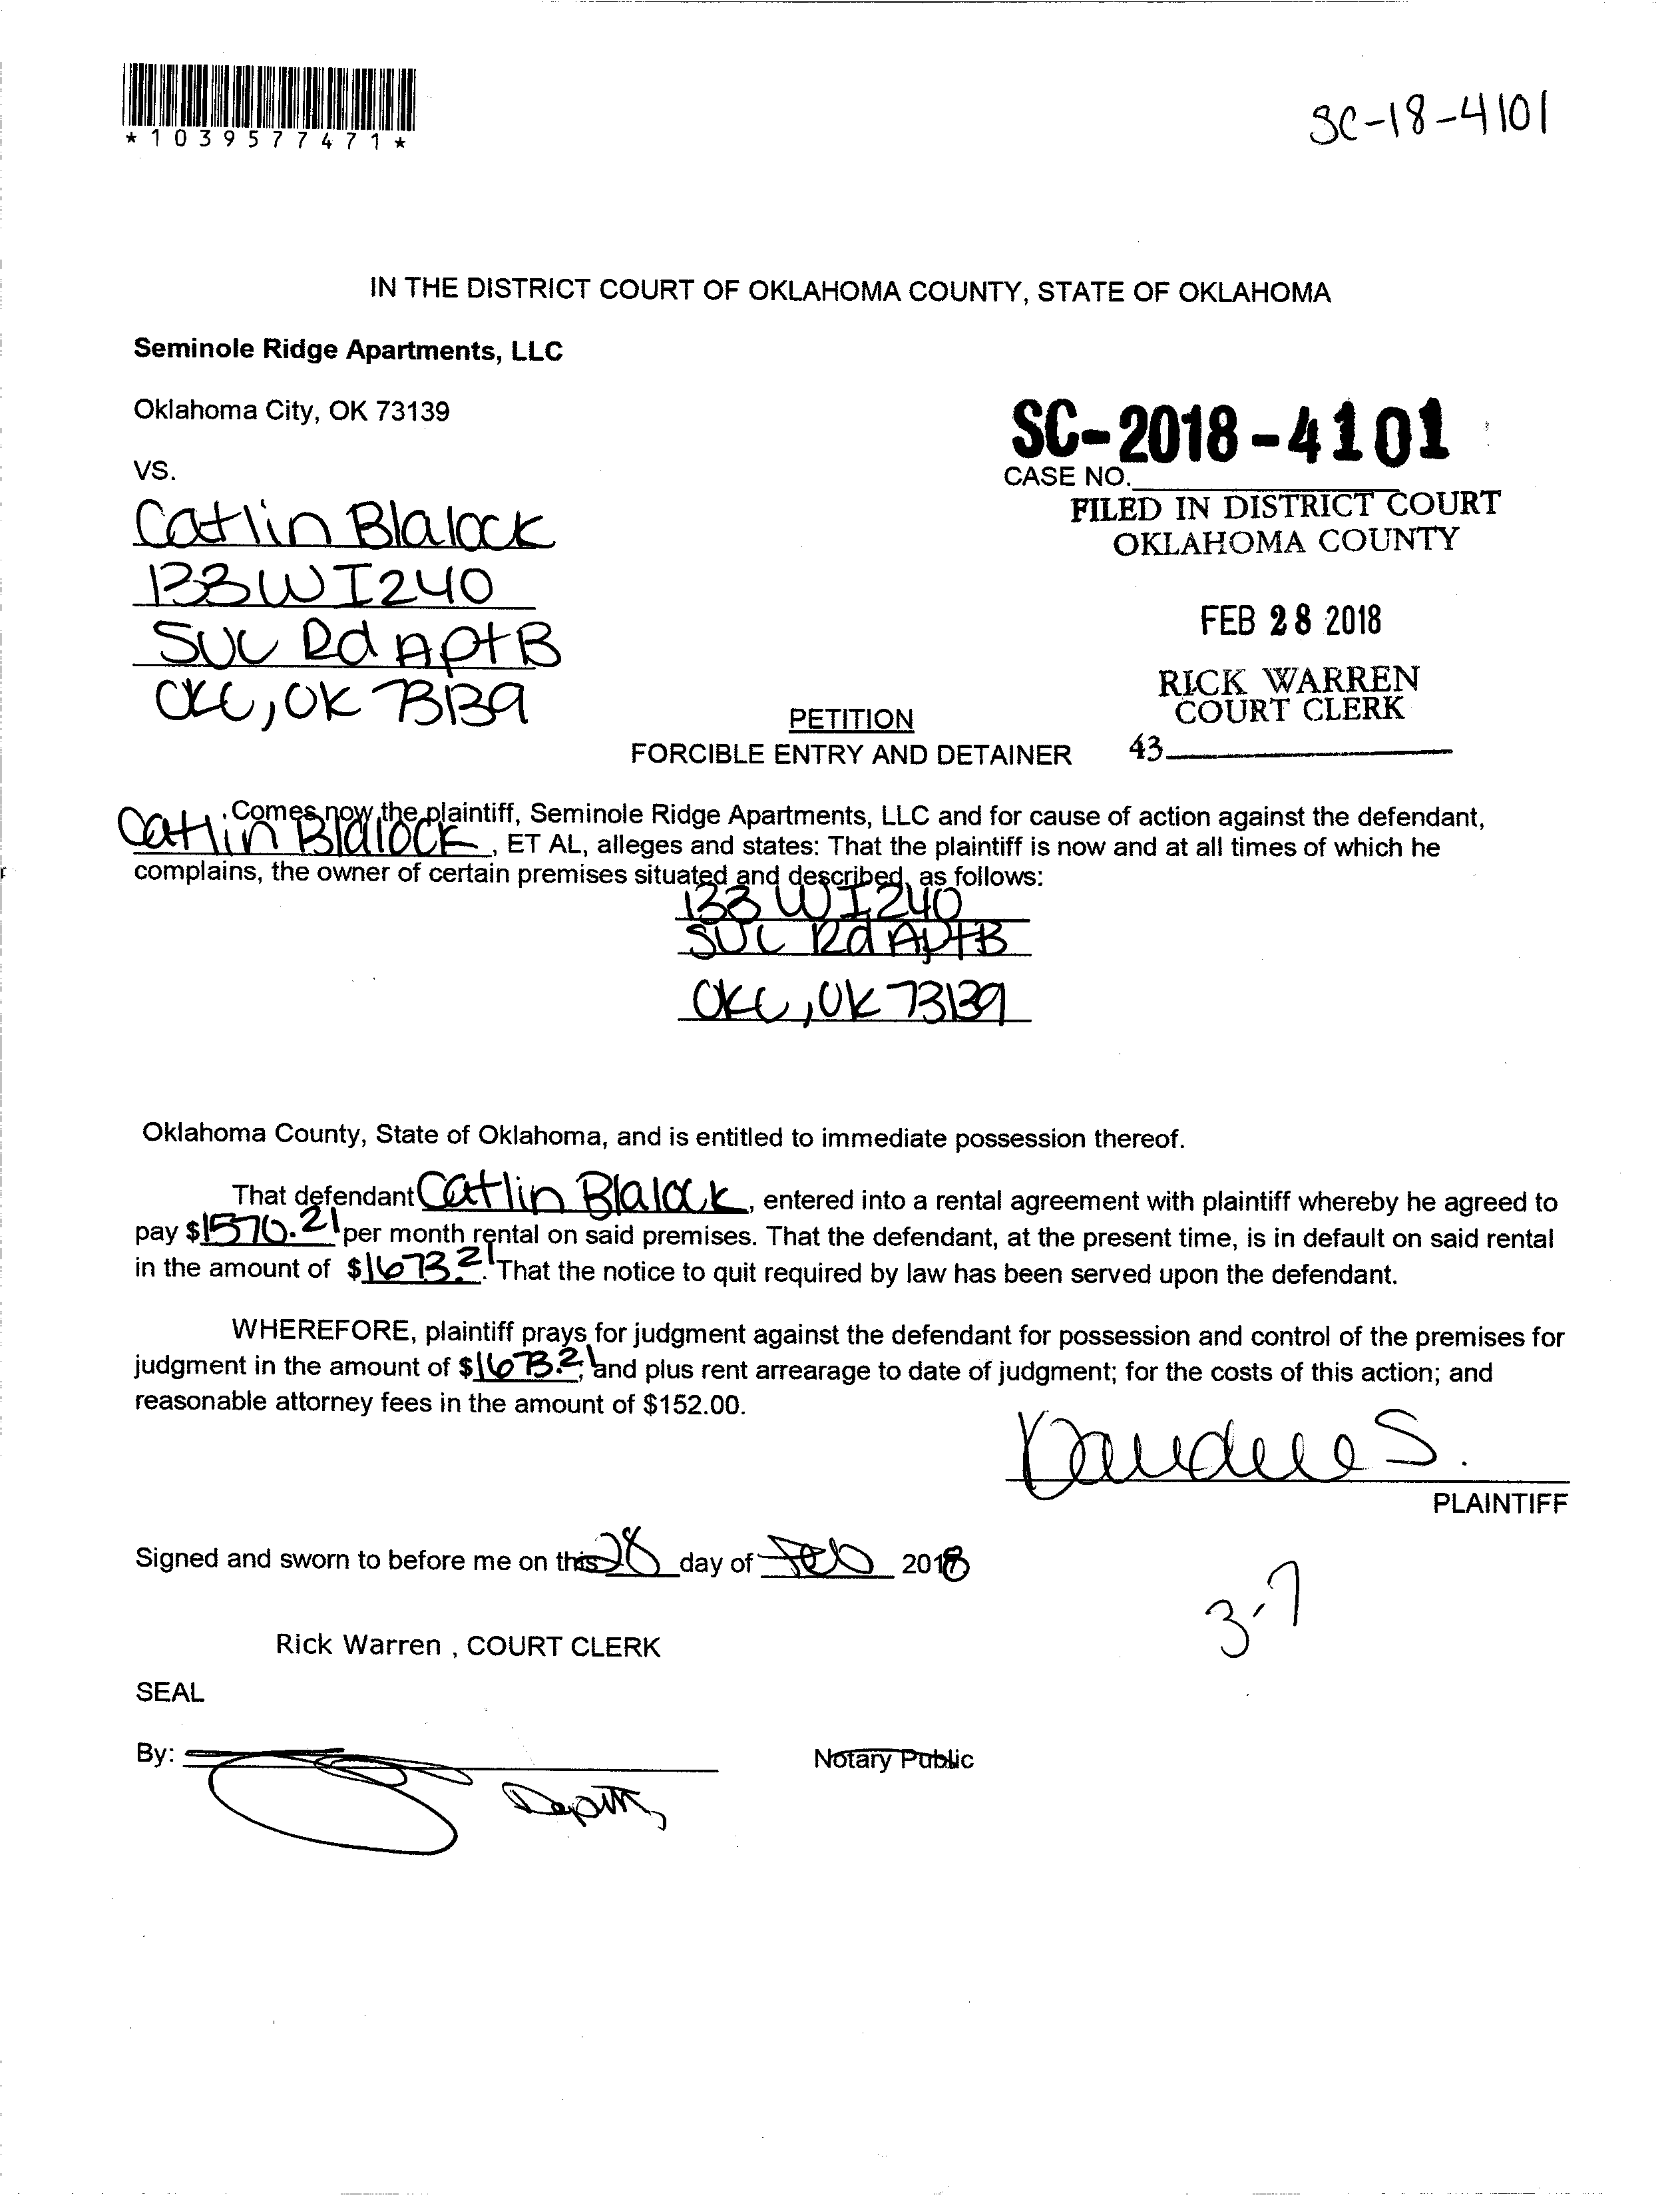 *1039577471*
SC-18-4101
IN THE DISTRICT COURT OF OKLAHOMA COUNTY, STATE OF OKLAHOMA
Seminole Ridge Apartments, LLC
Oklahoma City, OK 73139
VS.
SC-2018-4101
CASE NO.
FILED IN DISTRICT COURT
OKLAHOMA COUNTY
FEB 28 2018
RICK WARREN
COURT CLERK
43
Catlin Blalock
133 W I240
SVC Rd Apt B
OKC, OK 73139
PETITION
FORCIBLE ENTRY AND DETAINER
Comes now the plaintiff, Seminole Ridge Apartments, LLC and for cause of action against the defendant,
Catlin Blalock, ET AL, alleges and states: That the plaintiff is now and at all times of which he
complains, the owner of certain premises situated and described, as follows:
133 W I240
SVC Rd Apt B
OKC, OK 73139
Oklahoma County, State of Oklahoma, and is entitled to immediate possession thereof.
That defendant Catlin Blalock, entered into a rental agreement with plaintiff whereby he agreed to
pay $1570.21 per month rental on said premises. That the defendant, at the present time, is in default on said rental
in the amount of $1673.21. That the notice to quit required by law has been served upon the defendant.
WHEREFORE, plaintiff prays for judgment against the defendant for possession and control of the premises for
judgment in the amount of $1673.21, and plus rent arrearage to date of judgment; for the costs of this action; and
reasonable attorney fees in the amount of $152.00.
S.
PLAINTIFF
Signed and sworn to before me on this 28 day of Feb 2018
3-7
Rick Warren , COURT CLERK
SEAL
By:
Notary Public
Deputy